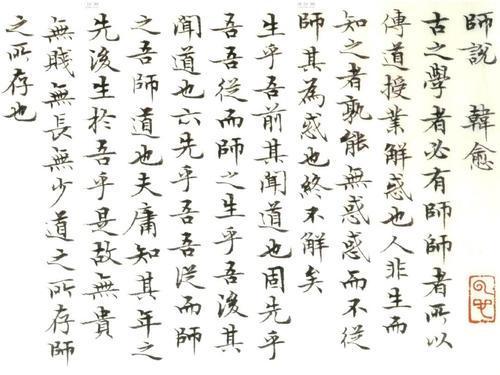 師說 韓愈
古之學者必有師師者所以
傳道授業解惑也人非生而
知之者孰能無惑惑而不從
師其為惑也終不解矣
生乎吾前其聞道也固先乎
吾吾從而師之生乎吾後其
聞道也亦先乎吾吾從而師
之吾師道也夫庸知其年之
先後生於吾乎是故無貴
無賤無長無少道之所存師
之所存也